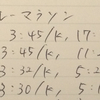 ルーマラソン
3:45/K, 17:
3:45/K, 11:
3:32/K, 5:
3:30/K, 5: